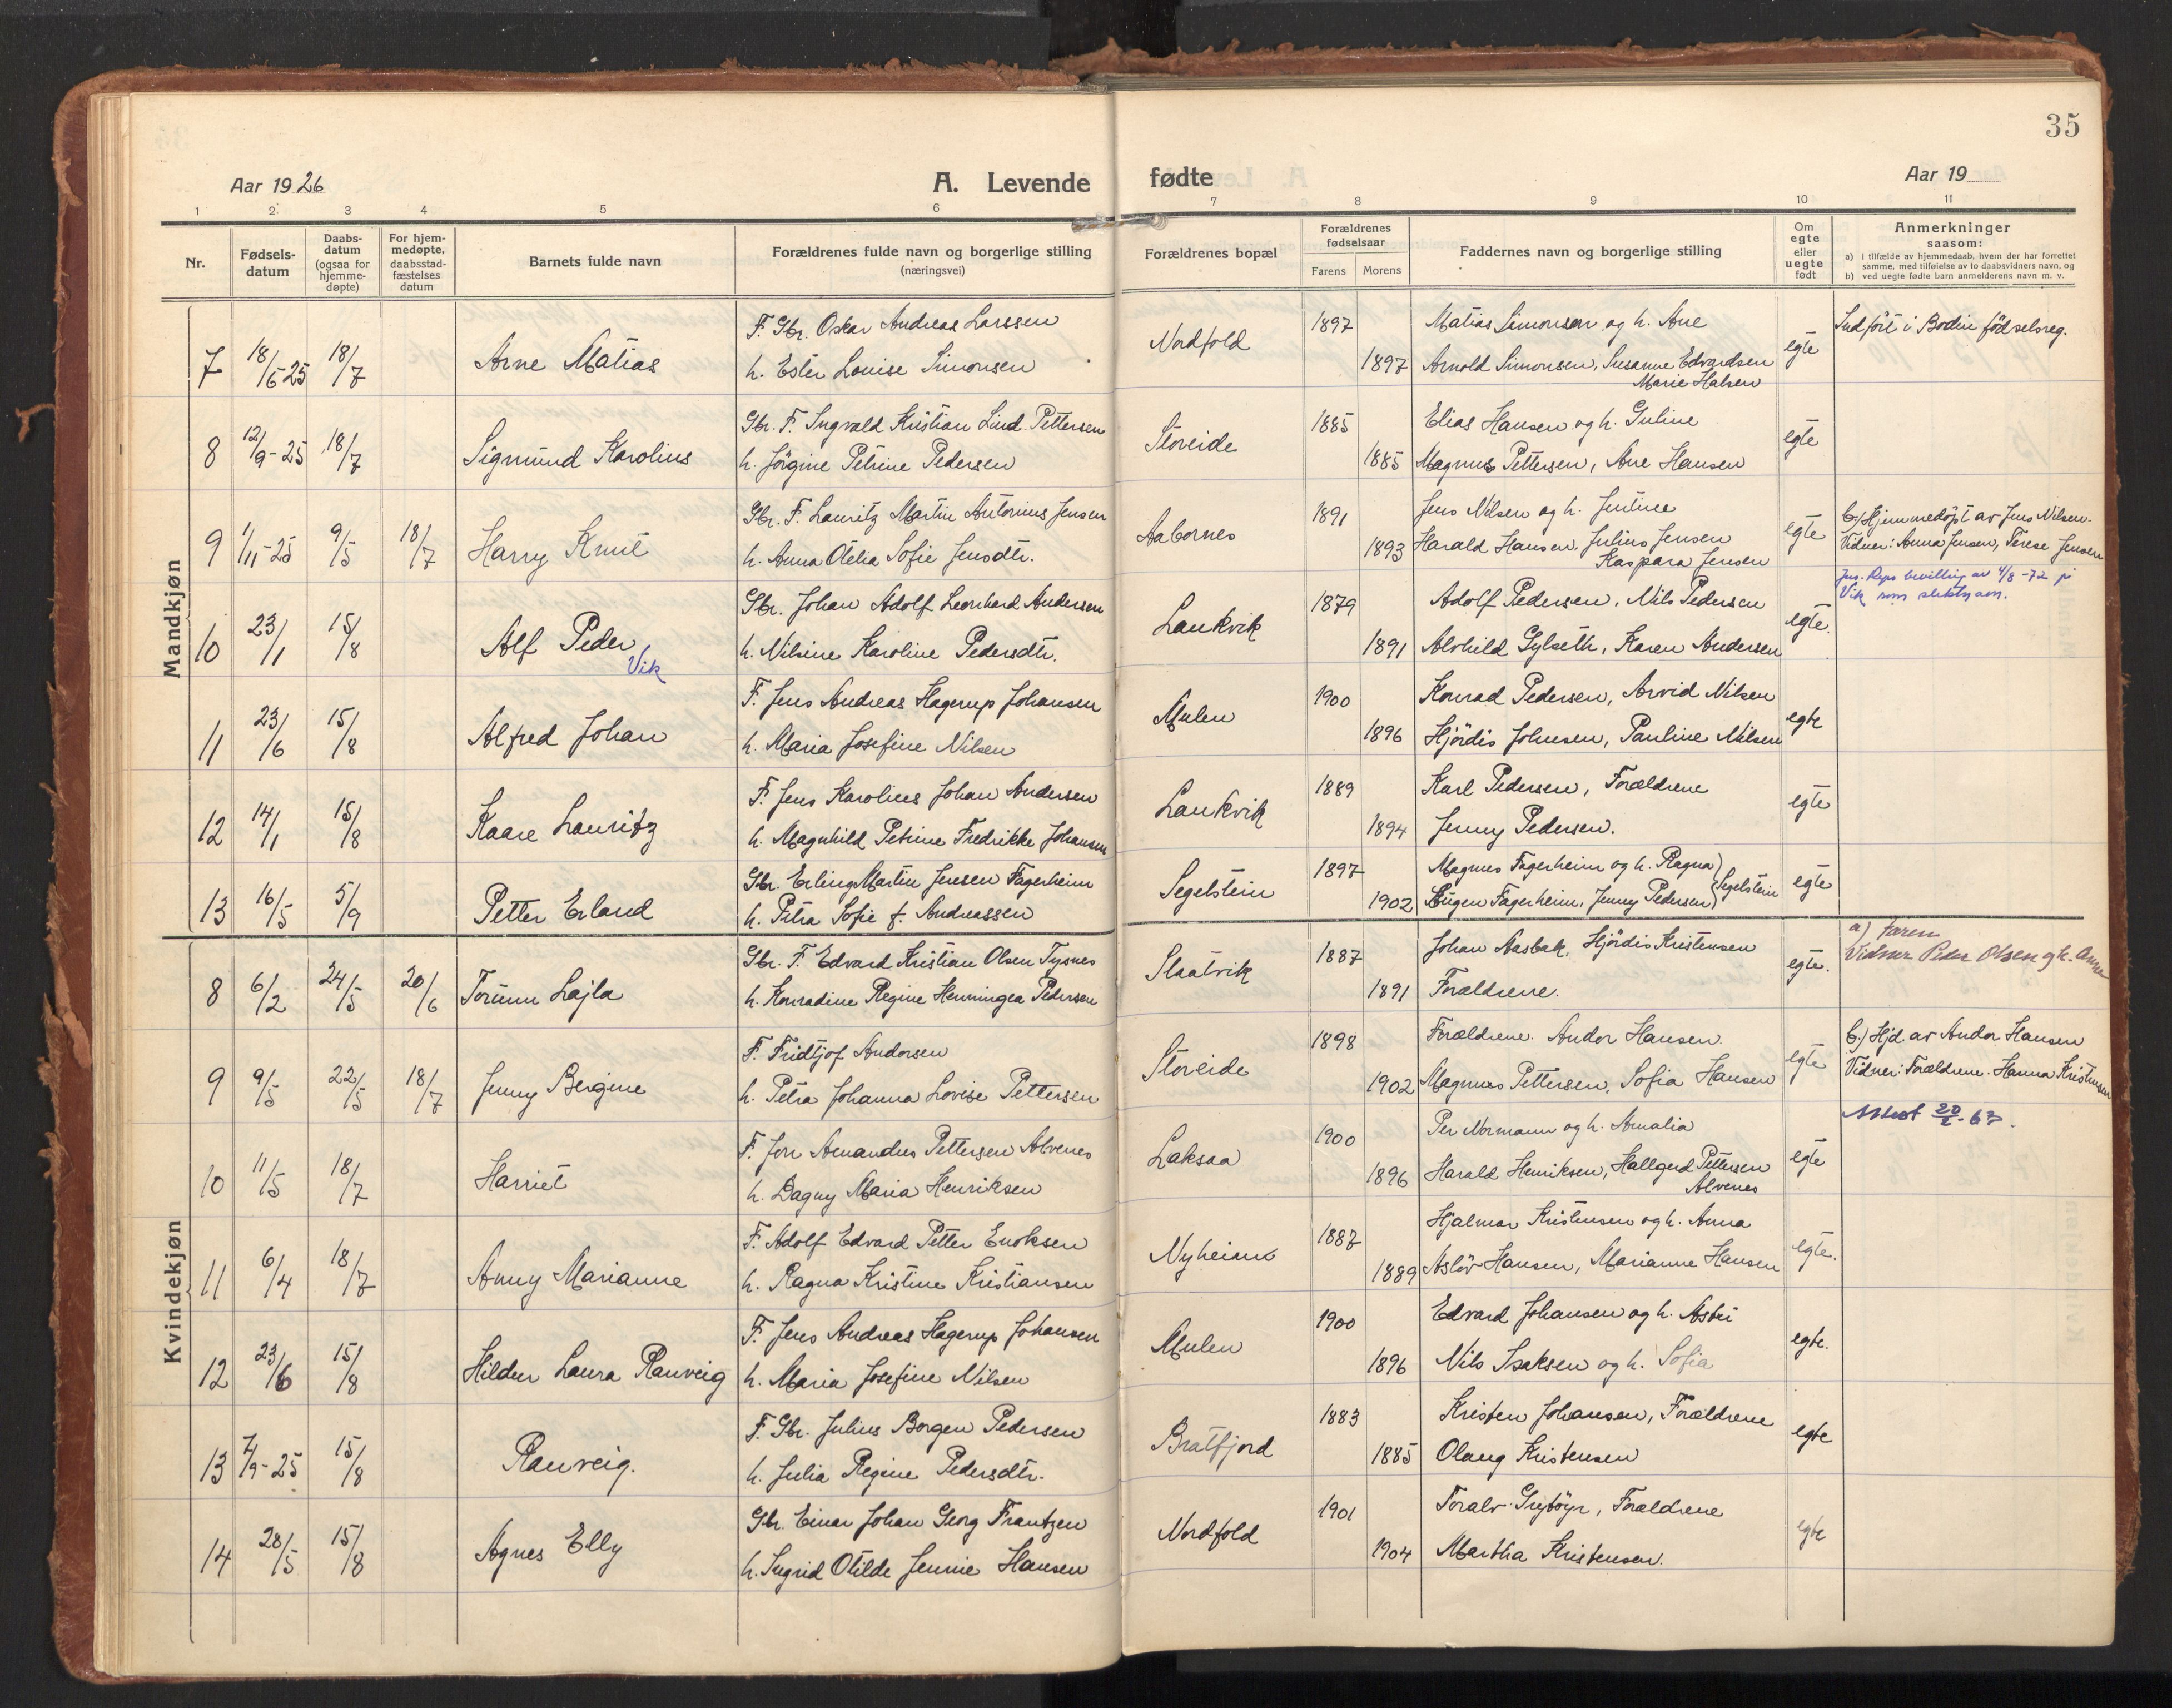 35
Aar 1926
A. Levende fødte
Aar 19
1 2 3 4 5 6 7 8 9 10 11
Nr.
Fødsels-
datum
Daabs-
datum
(ogsaa for
hjemme-
døpte)
For hjem-
medøpte,
daabsstad-
fæstelses
datum
Barnets fulde navn
Forældrenes fulde navn og borgerlige stilling
(næringsvei)
Forældrenes bopæl
Forældrenes
fødselsaar
Farens Morens
Faddernes navn og borgerlige stilling
Om
egte
eller
uegte
født
Anmerkninger
saasom:
a) i tilfælde av hjemmedaab, hvem der har forrettet
samme, med tilføielse av to daabsvidners navn, og
b) ved uegte fødte barn anmelderens navn m. v.
Mandkjøn
F. Gbr. Oskar Andreas Larssen 1897 Matias Simonsen og h. Ane Indført i Bodin fødselsreg.
7 18/6 25 18/7 Arne Matias h. Ester Louise Simonsen Nordfold 1897 Arnold Simonsen, Susanne Edvardsen egte
Marie Halsen
Gbr. F. Ingvald Kristian Lind Pettersen 1885 Elias Hansen og h. Guline
8 12/9-25 18/7 Sigmund Karolius h. Jørgine Petrine Pedersen Storeide 1885 Magnus Pettersen, Ane Hansen egte
Gbr. F. Lauritz Martin Antonius Jensen 1891 Jens Nilsen og h. Justine b.) Hjemmedøpt av Jens Nilsen.
9 1/11-25 9/5 18/7 Harry Knut h. Anna Otelia Sofie Jensdtr. Aabornes 1893 Harald Hansen, Julius Jensen egte Vidner: Anna Jensen, Terese Jensen
Kaspara Jensen
Jus. Deps bevilling av 4/8-72 på
Vik som slektsnavn.
Gbr. Johan Adolf Leonhard Andersen 1879 Adolf Pedersen, Nils Pedersen
10 23/1 15/8 Alf Peder h. Nilsine Karoline Pedersdtr. Laukvik 1891 Alvhild Gylseth, Karen Andersen egte.
Vik
F. Jens Andreas Hagerup Johansen 1900 Konrad Pedersen, Arvid Nilsen
11 23/6 15/8 Alfred Johan h. Maria Josefine Nilsen Mulen 1896 Hjørdis Johnsen, Pauline Nilsen egte
F. Jens Karolius Johan Andersen 1889 Karl Pedersen, Forældrene
12 14/1 15/8 Kaare Lauritz h. Magnhild Petrine Fredrikke Johansen Laukvik 1894 Jenny Pedersen. egte
Gbr. Erling Martin Jensen Fagerheim 1897 Magnus Fagerheim og h. Ragna
13 16/5 5/9 Petter Erland h. Petra Sofie f. Andreassen Segelstein 1902 Eugen Fagerheim, Jenny Pedersen Segelstein egte
Kvindekjøn
Gbr. F. Edvard Kristian Olsen Tysnes 1887 Johan Aasbak, Hjørdis Kristensen a) faren
8 6/2 24/5 20/6 Torunn Lajla h. Konradine Regine Henningea Pedersen Slaatvik 1891 Forældrene. egte. Vidner Peder Olsen og h. Anna
F. Fridtjof Andorsen 1898 Forældrene. Andor Hansen b.) Hjd av Andor Hansen
9 9/5 22/5 18/7 Jenny Bergine h. Petra Johanna Lovise Pettersen Storeide 1902 Magnus Pettersen, Sofia Hansen egte Vidner: Forældrene. Hanna Kristensen
F. Jon Amandus Pettersen Alvenes 1900 Per Normann og h. Amalia Attest 20/2-67.
10 11/5 18/7 Harriet h. Dagny Maria Henriksen Laksaa 1896 Harald Henriksen, Hallgerd Pettersen egte
Alvenes
F. Adolf Edvard Petter Enoksen 1887 Hjalmar Kristensen og h. Anna
11 6/4 18/7 Anny Marianne h. Ragna Kristine Kristiansen Nyheim 1889 Asløv Hansen, Marianne Hansen egte.
F. Jens Andreas Hagerup Johansen 1900 Edvard Johansen og h. Asbri
12 23/6 15/8 Hildur Laura Ranveig h. Maria Josefine Nilsen Mulen 1896 Nils Isaksen og h. Sofia egte.
F. Gbr. Julius Borgen Pedersen 1883 Kristen Johansen, Forældrene
13 7/9-25 15/8 Ranveig. h. Julia Regine Pedersdtr. Bratfjord 1885 Olaug Kristensen egte
Gbr. Einar Johan Georg Frantzen 1901 Toralv Grytøyr, Forældrene
14 28/5 15/8 Agnes Elly h. Ingrid Otilde Jennie Hansen Nordfold 1904 Martha Kristensen. egte